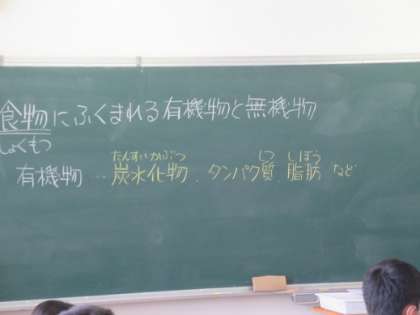 食物にふくまれる有機物と無機物
しょくもつ
たんすいかぶつ しつ しぼう
有機物…炭水化物、タンパク質、脂肪 など